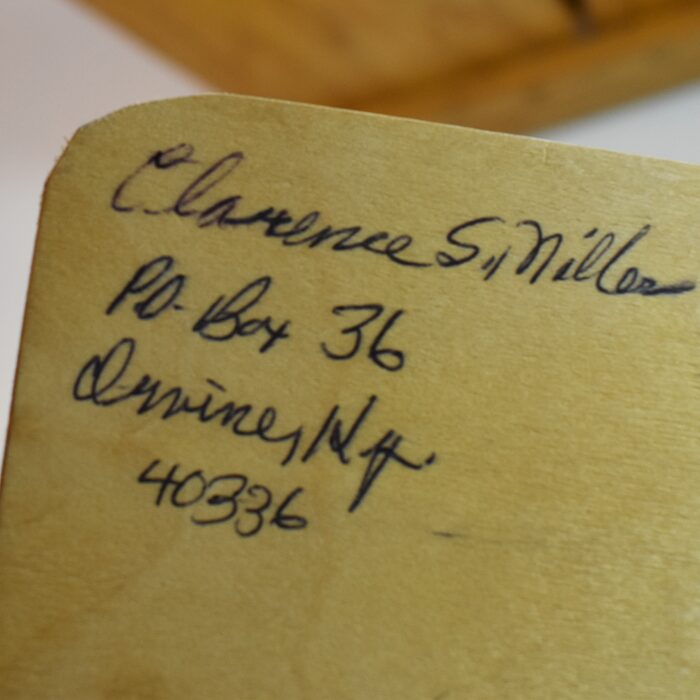 Clarence S. Miller
PO. Box 36
Irvine, Ky.
40336